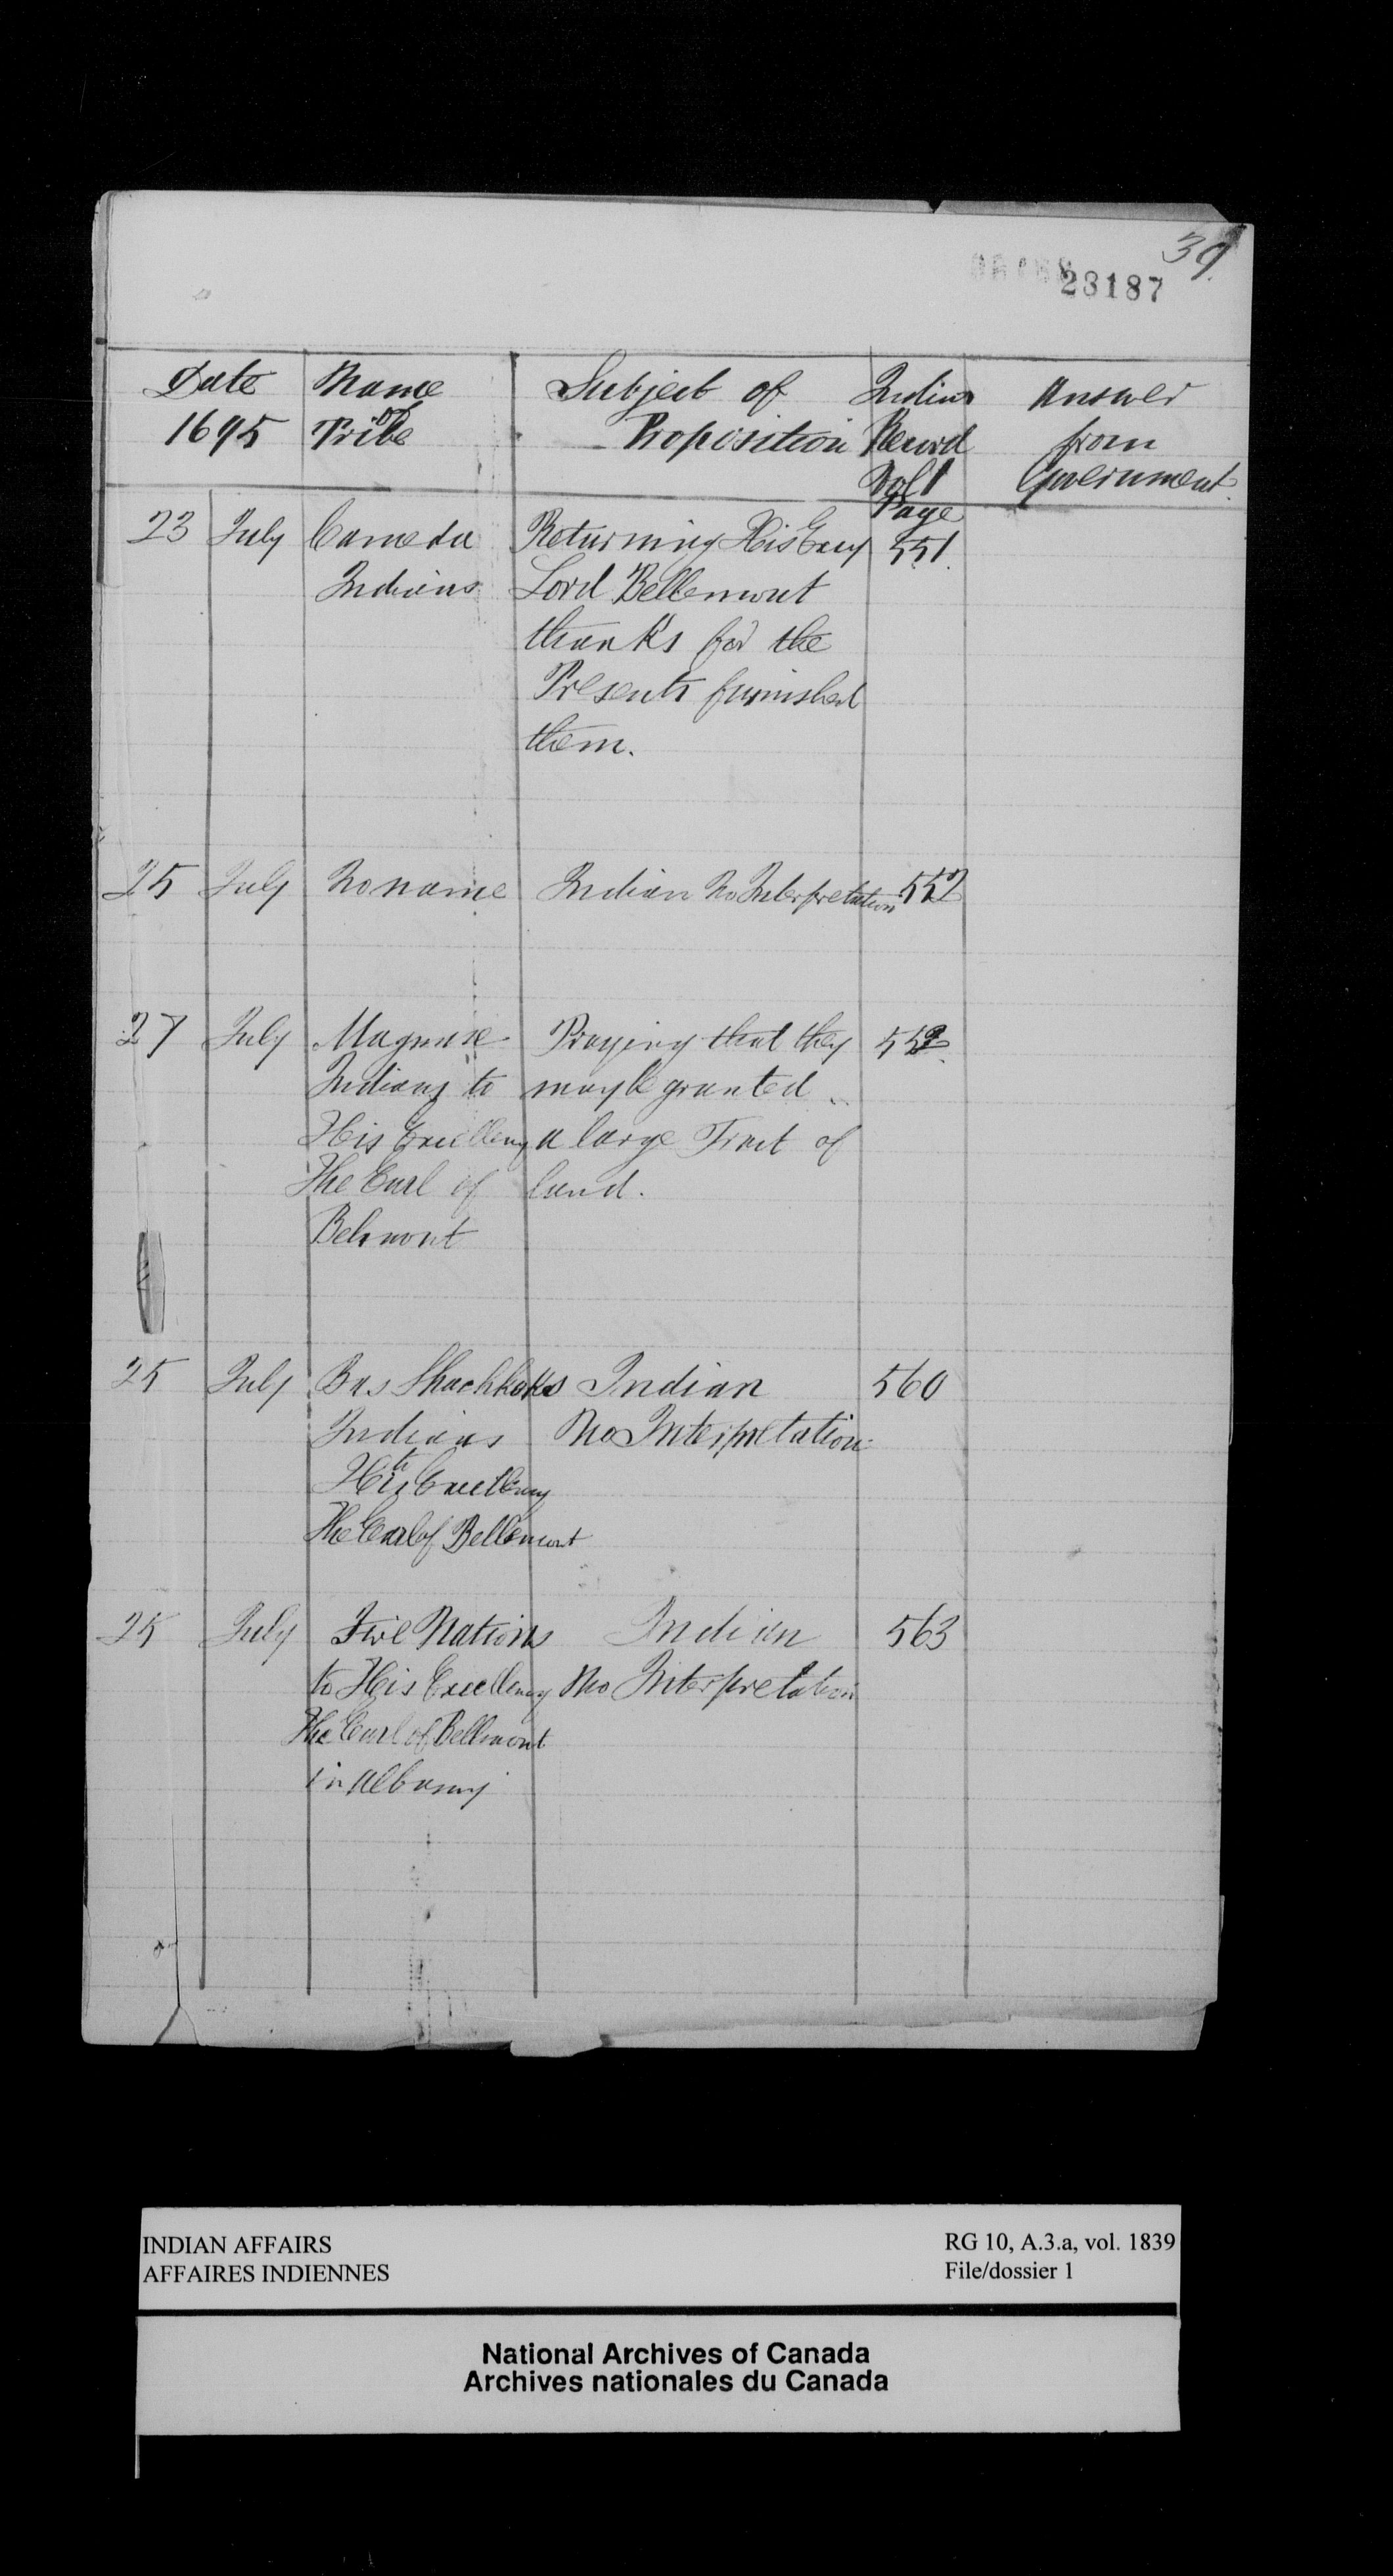 39.
23187
Date Name Subject of Indian Answer
1695 of Tribe Proposition Record from
Vol 1 Government.
Page
23 July Caneda Returning His Excy 551.
Indians Lord Bellemont
thanks for the
Presents furnished
them.
25 July No name Indian No Interpretation 552
27 July Maquase Praying that they 552
Indians to may be granted
His Excellency a large Tract of
The Earl of land.
Belmont
25 July Shachkoks Indian 560
Indians No Interpretation
to His Excellency
The Earl of Bellemont
25 July Five Nations Indian 563
to His Excellency No Interpretation
The Earl of Bellmont
in Albany
INDIAN AFFAIRS RG 10, A.3.a, vol. 1839
AFFAIRES INDIENNES File/dossier 1
National Archives of Canada
Archives nationales du Canada